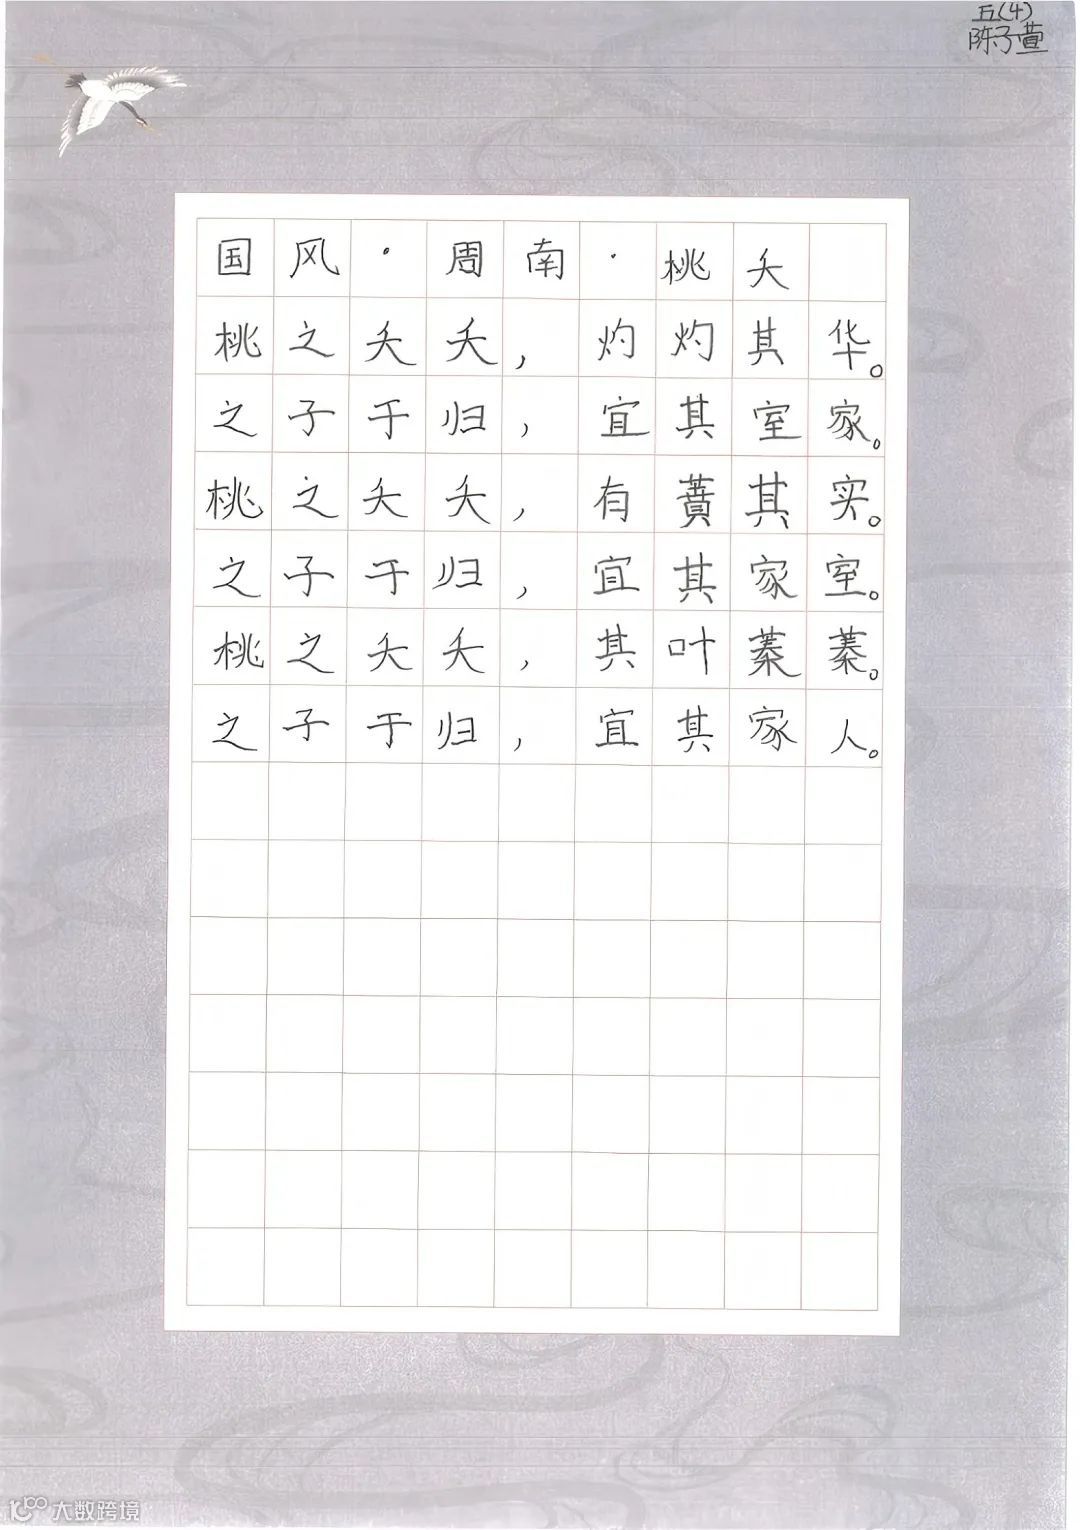 五(4)
陈子萱
国风·周南·桃夭
桃之夭夭，灼灼其华。
之子于归，宜其室家。
桃之夭夭，有蕡其实。
之子于归，宜其家室。
桃之夭夭，其叶蓁蓁。
之子于归，宜其家人。
大数跨境